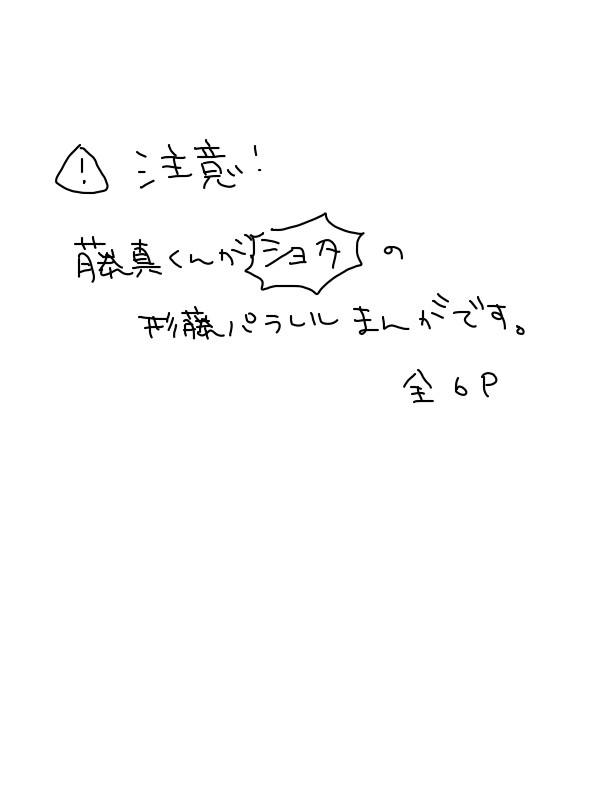 ⚠ 注意!
藤真くんがショタの
形藤パラレルまんがです。
全6P